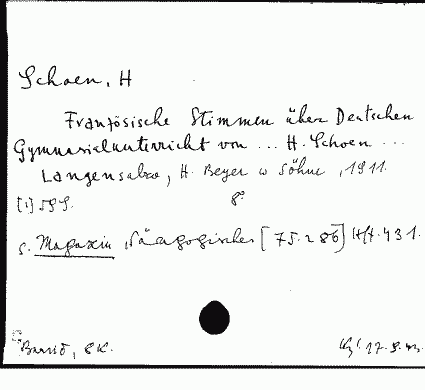 Schoen, H
Französische Stimmen über Deutschen
Gymnasialunterricht von ... H. Schoen ...
Langensalza, H. Beyer u Söhne, 1911.
[1] 59 S. 8°
s. Magazin Pädagogisches [75.286] Hft. 431.